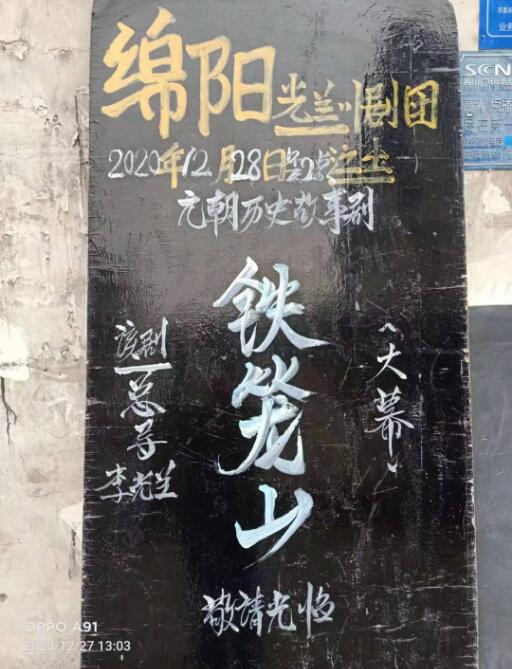 绵阳光兰川剧团
2020年12月28日午2点演出
元朝历史故事剧
铁笼山
“大幕”
该剧
总导
李光兰
敬请光临
SCN
OPPO A91
2020/12/27 13:03